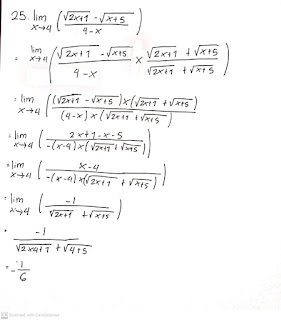 25. lim x→4 ( (√(2x+1) - √(x+5)) / (4-x) )
= lim x→4 ( (√(2x+1) - √(x+5)) / (4-x) × (√(2x+1) + √(x+5)) / (√(2x+1) + √(x+5)) )
= lim x→4 ( ((√(2x+1) - √(x+5)) × (√(2x+1) + √(x+5))) / ((4-x) × (√(2x+1) + √(x+5))) )
= lim x→4 ( (2x+1-x-5) / (-(x-4) × (√(2x+1) + √(x+5))) )
= lim x→4 ( (x-4) / (-(x-4) × (√(2x+1) + √(x+5))) )
= lim x→4 ( -1 / (√(2x+1) + √(x+5)) )
= -1 / (√(2×4+1) + √(4+5))
= -1/6
Scanned with CamScanner